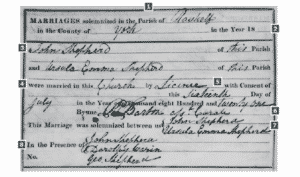 1
MARRIAGES solemnized in the Parish of
in the County of York in the Year 18
2
3 John Shepherd of this Parish
and Ursula Emma Shepherd of this Parish
4 were married in this Church by Licence with Consent of
5
this Sixteenth Day of
July in the Year One thousand eight Hundred and Twenty one
By me Barton Curate
6
This Marriage was solemnized between us John Shepherd
7
Ursula Emma Shepherd
8 In the Presence of John Shepherd
No. Geo Shepherd